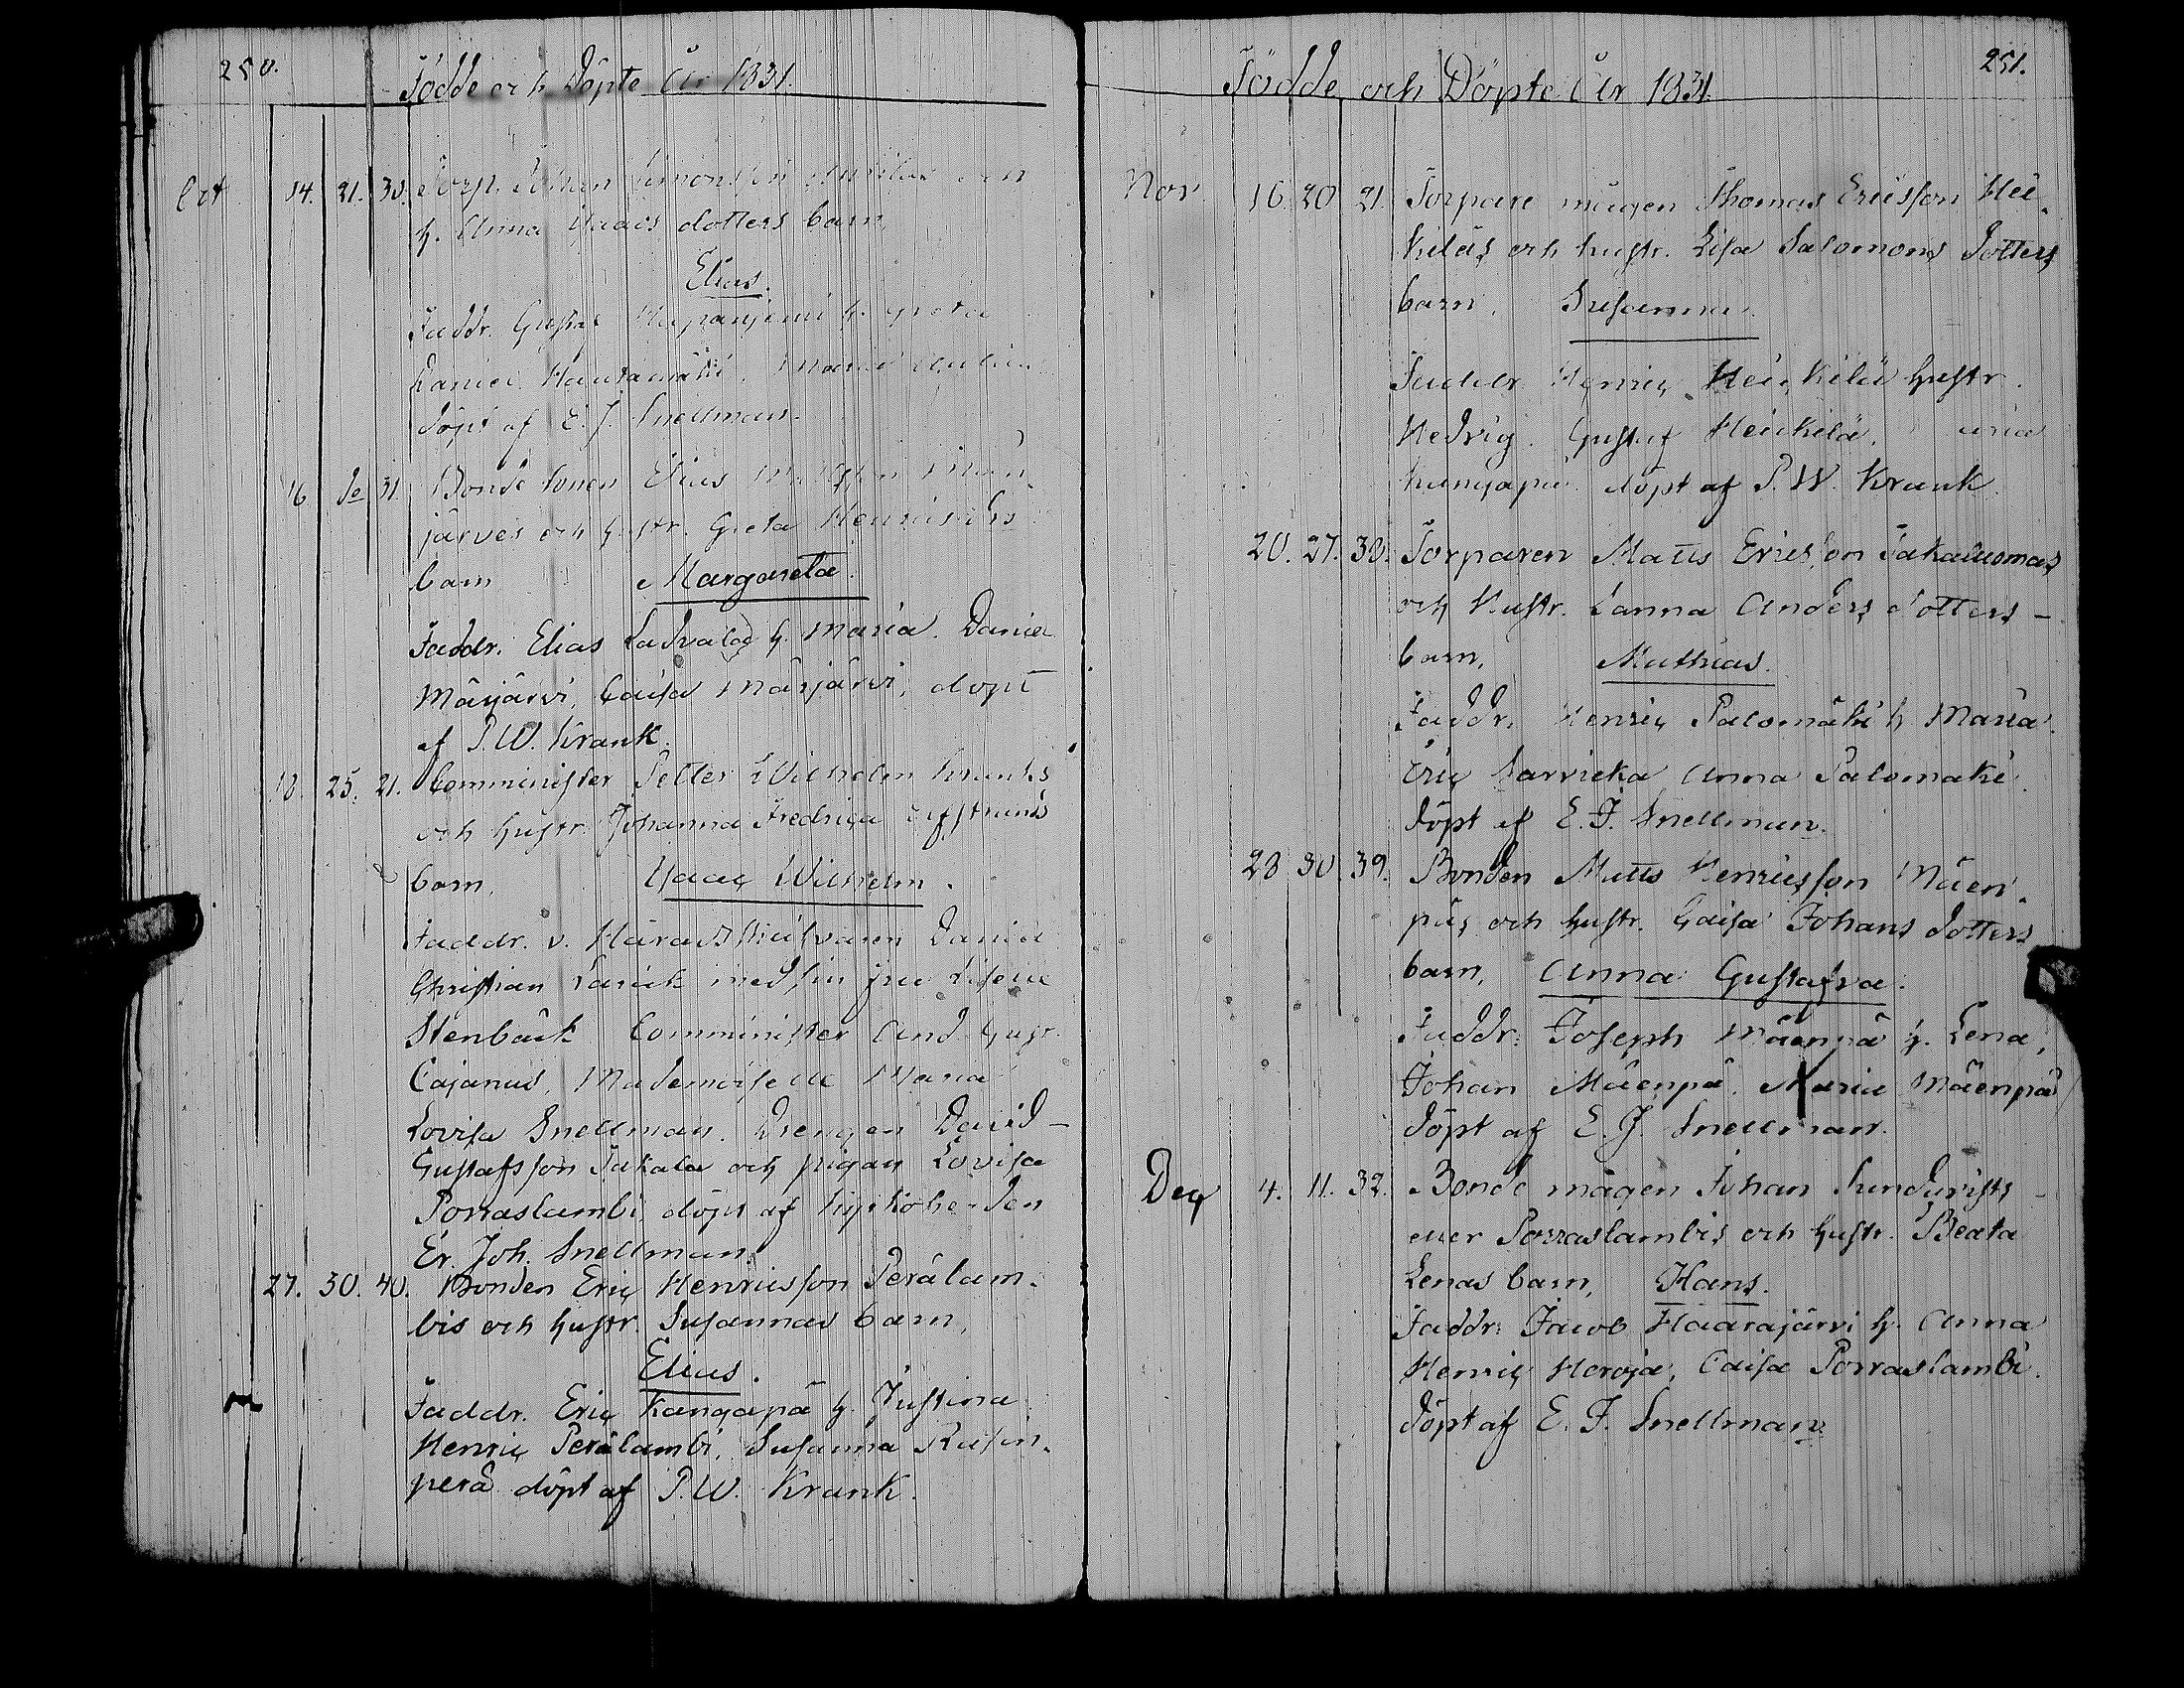 250.
Födde och Döpte År 1831.
Oct 14. 21. 30. Torp. Johan Simonsson och
h. Anna Isaacs dotters barn
Elias.
Faddr. Gustaf h. Greta
Daniel Hautamäki. Maria
döpt af E. J. Snellman.
16 do 31. Bonde sonen Elias
järves och hustr. Greta Henricsdrs
barn Margareta.
Faddr. Elias Ladvala h. Maria. Daniel
Märjärvi, Caisa Märjärvi, döpt
af P. W. Krank.
18. 25. 21. Comminister Petter Wilhelm Kranks
och hustr. Johanna Fredrica
barn, Isaac Wilhelm.
Faddr. v. Häradsskrifvaren Daniel
Christian med sin fru
Stenbäck Comminister And. hustr.
Cajanus, Mademoiselle Maria
Lovisa Snellman. Drengen David
Gustafsson Jakala och pigan Lovisa
Porraslambi, döpt af Kyrkoherden
Er. Joh. Snellman.
27. 30. 40. Bonden Eric Henricsson Perälam-
bis och hustr. Susannas barn,
Elias.
Faddr. Eric Kangapä h. Justina
Henric Perälambi, Susanna
perä döpt af P. W. Krank.
251.
Födde och Döpte År 1831.
Nov 16. 20 21. Torpare mågen Thomas Ericsson Hei-
kiläs och hustr. Lisa Salomons dotters
barn, Susanna.
Faddr Henric Heickilä hustr.
Hedvig. Gustaf Heickilä,
döpt af P. W. Krank.
20. 27. 30. Torparen Matts Ericsson Jakaluomas
och Hustr. Sanna Anders dotters
barn, Mathias.
Faddr. Henric Palomäki h. Maria.
Eric Sarvicka Anna Palomäki.
döpt af E. J. Snellman.
28 30. 39. Bonden Matts Henricsson Mäen-
päs och hustr. Caisa Johans dotters
barn, Anna Gustafva.
Faddr. Joseph Mäenpä h. Lena,
Johan Mäenpä. Maria Mäenpä
döpt af E. J. Snellman.
Dec 4. 11. 32. Bonde mågen Johan Sundqvists
eller Porraslambis och hustr. Beata
Lenas barn, Hans.
Faddr. Jacob Haarajärvi h. Anna
Henric Heroja, Caisa Porraslambi.
döpt af E. J. Snellman.